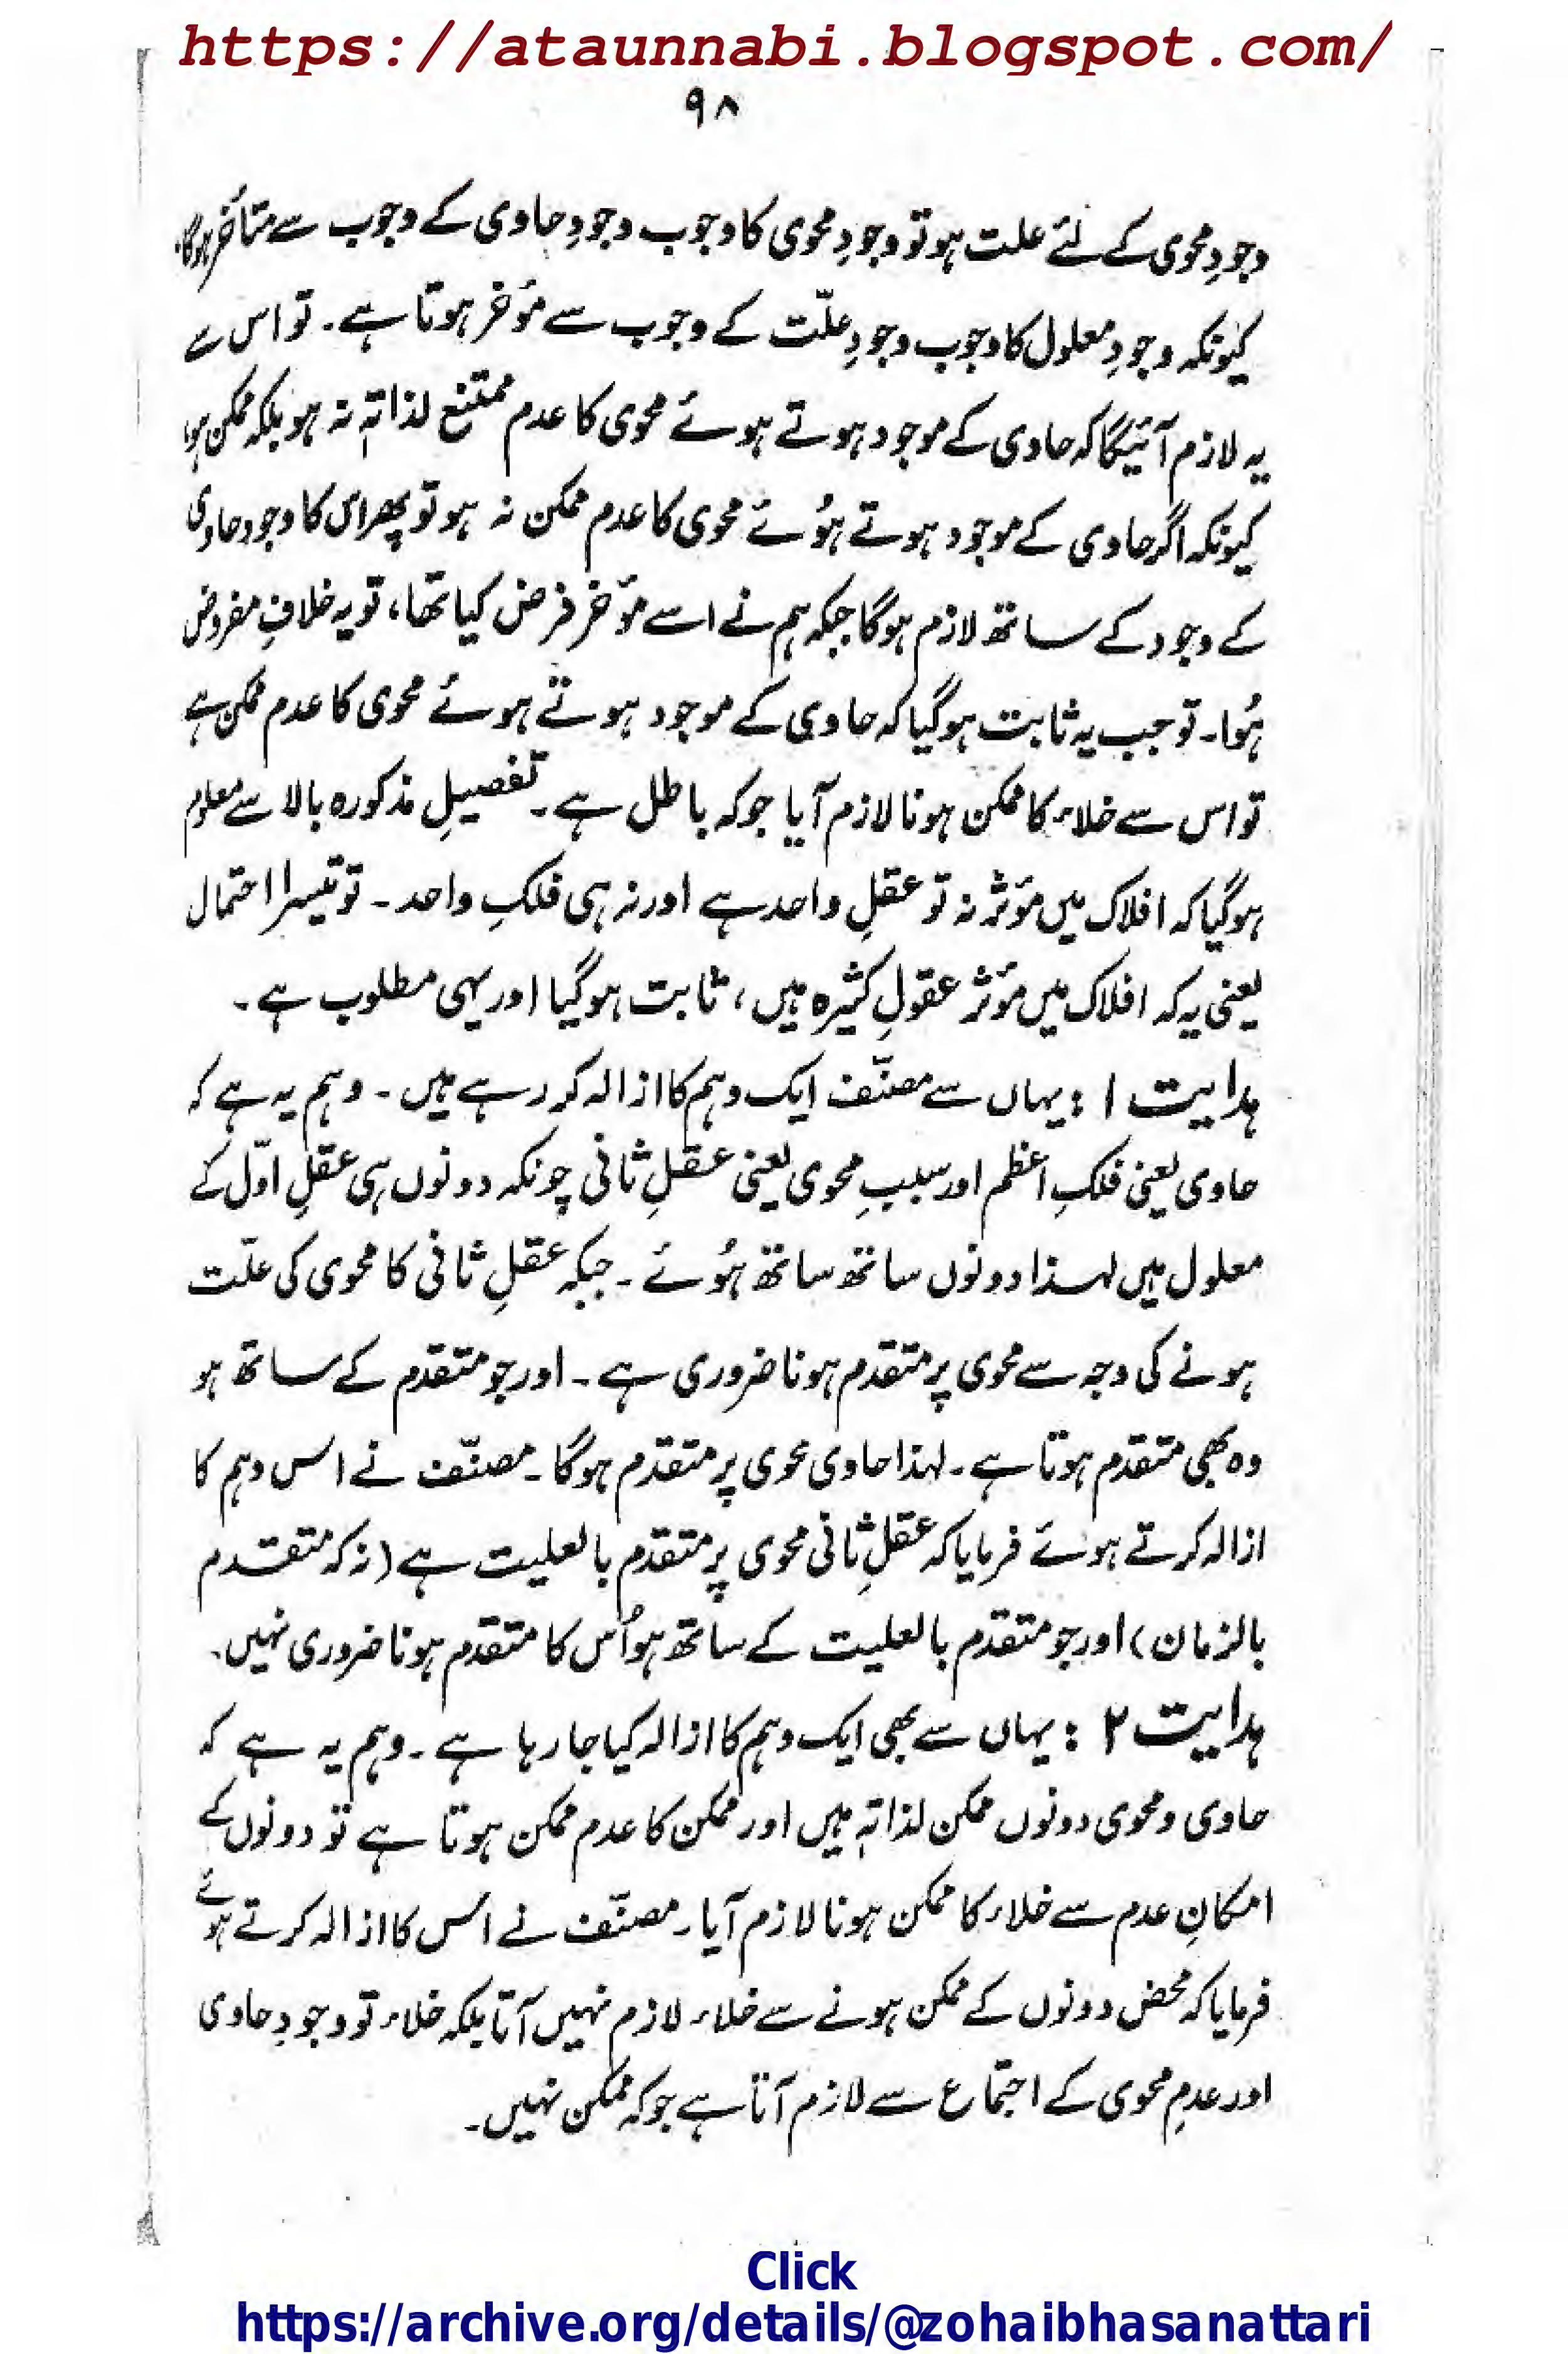 https://ataunnabi.blogspot.com/
۹۸
وجودِ محوی کے لئے علت ہو تو وجودِ محوی کا وجوب وجودِ حاوی کے وجوب سے متأخر ہوگا،
کیونکہ وجودِ معلول کا وجوب وجودِ علّت کے وجوب سے مؤخر ہوتا ہے۔ تو اس سے
یہ لازم آئیگا کہ حاوی کے موجود ہوتے ہوئے محوی کا عدم ممتنع لذاتہٖ نہ ہو بلکہ ممکن ہو،
کیونکہ اگر حاوی کے موجود ہوتے ہُوئے محوی کا عدم ممکن نہ ہو تو پھر اس کا وجود حاوی
کے وجود کے ساتھ لازم ہوگا جبکہ ہم نے اسے مؤخر فرض کیا تھا، تو یہ خلافِ مفروض
ہُوا۔ تو جب یہ ثابت ہوگیا کہ حاوی کے موجود ہوتے ہوئے محوی کا عدم ممکن ہے
تو اس سے خلاء کا ممکن ہونا لازم آیا جو کہ باطل ہے۔ تفصیلِ مذکورہ بالا سے معلوم
ہوگیا کہ افلاک میں مؤثر نہ تو عقلِ واحد ہے اور نہ ہی فلکِ واحد۔ تو تیسرا احتمال
یعنی یہ کہ افلاک میں مؤثر عقولِ کثیرہ ہیں، ثابت ہوگیا اور یہی مطلوب ہے۔
ہدایت ۱ : یہاں سے مصنّف ایک وہم کا ازالہ کر رہے ہیں۔ وہم یہ ہے کہ
حاوی یعنی فلکِ اعظم اور سببِ محوی یعنی عقلِ ثانی چونکہ دونوں ہی عقلِ اوّل کے
معلول ہیں لہٰذا دونوں ساتھ ساتھ ہُوئے۔ جبکہ عقلِ ثانی کا محوی کی علّت
ہونے کی وجہ سے محوی پر متقدم ہونا ضروری ہے۔ اور جو متقدم کے ساتھ ہو
وہ بھی متقدم ہوتا ہے۔ لہذا حاوی محوی پر متقدّم ہوگا۔ مصنّف نے اس وہم کا
ازالہ کرتے ہوئے فرمایا کہ عقلِ ثانی محوی پر متقدّم بالعلیت ہے (نہ کہ متقدم
بالزمان) اور جو متقدّم بالعلیت کے ساتھ ہو اُس کا متقدم ہونا ضروری نہیں۔
ہدایت ۲ : یہاں سے بھی ایک وہم کا ازالہ کیا جا رہا ہے۔ وہم یہ ہے کہ
حاوی و محوی دونوں ممکن لذاتہٖ ہیں اور ممکن کا عدم ممکن ہوتا ہے تو دونوں کے
امکانِ عدم سے خلاء کا ممکن ہونا لازم آیا۔ مصنّف نے اس کا ازالہ کرتے ہوئے
فرمایا کہ محض دونوں کے ممکن ہونے سے خلاء لازم نہیں آتا بلکہ خلاء تو وجودِ حاوی
اور عدمِ محوی کے اجتماع سے لازم آتا ہے جو کہ ممکن نہیں۔
Click
https://archive.org/details/@zohaibhasanattari